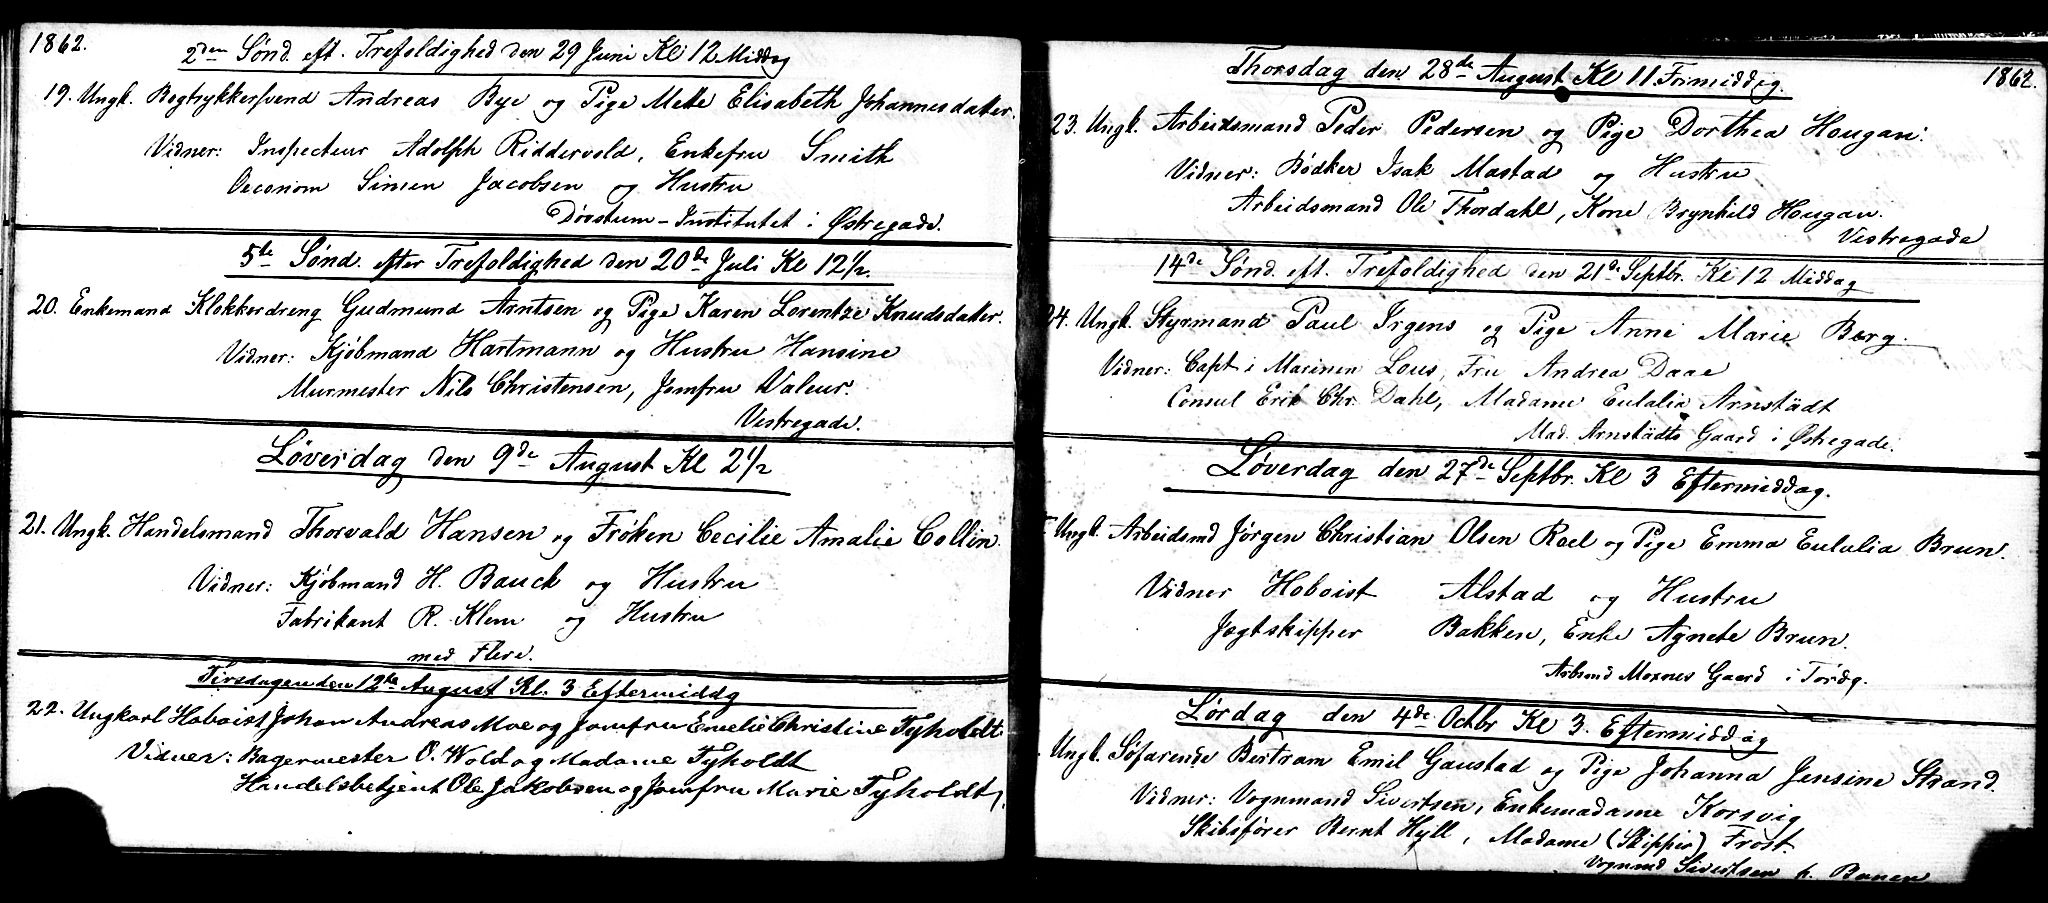 1862.
2den Sønd. eft. Trefoldighed den 29 Juni Kl 12 Middag
19. Ungk. Bogtrykkersvend Andreas Bye og Pige Mette Elisabeth Johannesdatter.
Vidner: Inspecteur Adolph Riddervold, Enkefru Smith
Oeconom Simen Jacobsen og Hustru
Døvstum-Institutet i Østregade.
5te Sønd. efter Trefoldighed den 20de Juli Kl 12½.
20. Enkemand Klokkerdreng Gudmund Arntsen og Pige Karen Lorentze Knudsdatter.
Vidner: Kjøbmand Hartmann og Hustru Hansine
Murmester Nils Christensen, Jomfru Valeur.
Vestregade.
Løverdag den 9de August Kl 2½
21. Ungk. Handelsmand Thorvald Hansen og Frøken Cecilie Amalie Collin.
Vidner: Kjøbmand H. Bauck og Hustru
Fabrikant R. Klem og Hustru
med Flere.
Tirsdagen den 12te August Kl. 3 Eftermiddg
22. Ungkarl Hoboist Johan Andreas Moe og Jomfru Emelie Christine Tyholdt.
Vidner: Bagermester O. Wold og Madame Tyholdt
Handelsbetjent Ole Jakobsen og Jomfru Marie Tyholdt
1862.
Thorsdag den 28de August Kl 11 Formiddag.
23. Ungk. Arbeidsmand Peder Pedersen og Pige Dorthea Hougan.
Vidner: Bødker Isak Mastad og Hustru
Arbeidsmand Ole Thordahl, Kone Brynhild Hougan.
Vestregade
14de Sønd. eft. Trefoldighed den 21de Septbr. Kl 12 Middag
24. Ungk. Styrmand Paul Irgens og Pige Anne Marie Berg.
Vidner: Capt i Marinen Lous, Fru Andrea Daae
Consul Erik Chr. Dahl, Madame Eulalia Arnstädt
Mad. Arnstädts Gaard i Østregade.
Løverdag den 27de Septbr. Kl 3 Eftermiddag.
Ungk. Arbeidsmd Jørgen Christian Olsen Roel og Pige Emma Eulalia Brun.
Vidner Hoboist Alstad og Hustru
Jægtskipper Bakken, Enke Agnete Brun.
Arbmnd Moxnes Gaard i
Lørdag den 4de Octbr Kl 3. Eftermiddag
Ungk. Søfarende Bertram Emil Gaustad og Pige Johanna Jensine Strand.
Vidner: Vognmand Sivertsen, Enkemadame Korsvig
Skibsfører Bernt Hyll, Madame (Skipper) Frost.
Vognmd Sivertsen p. Banen